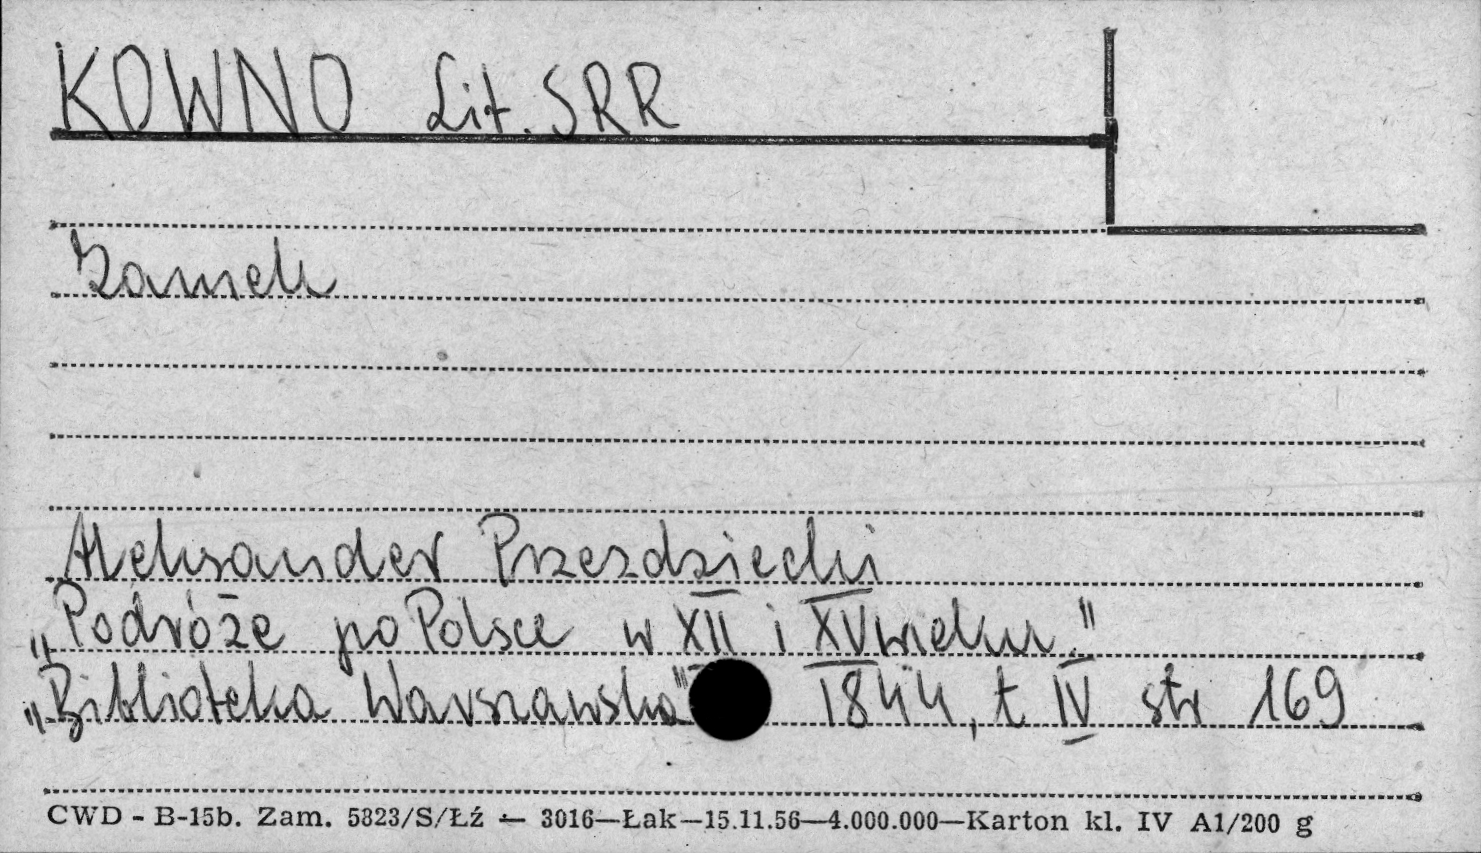 KOWNO Lit. SRR
Zamek
Aleksander Przezdziecki
„Podróże po Polsce w XII i XV wieku."
„Biblioteka Warszawska" 1844, t IV str 169
CWD - B-15b. Zam. 5323/S/Łź — 3016—Łak—15.11.56—4.000.000—Karton kl. IV A1/200 g